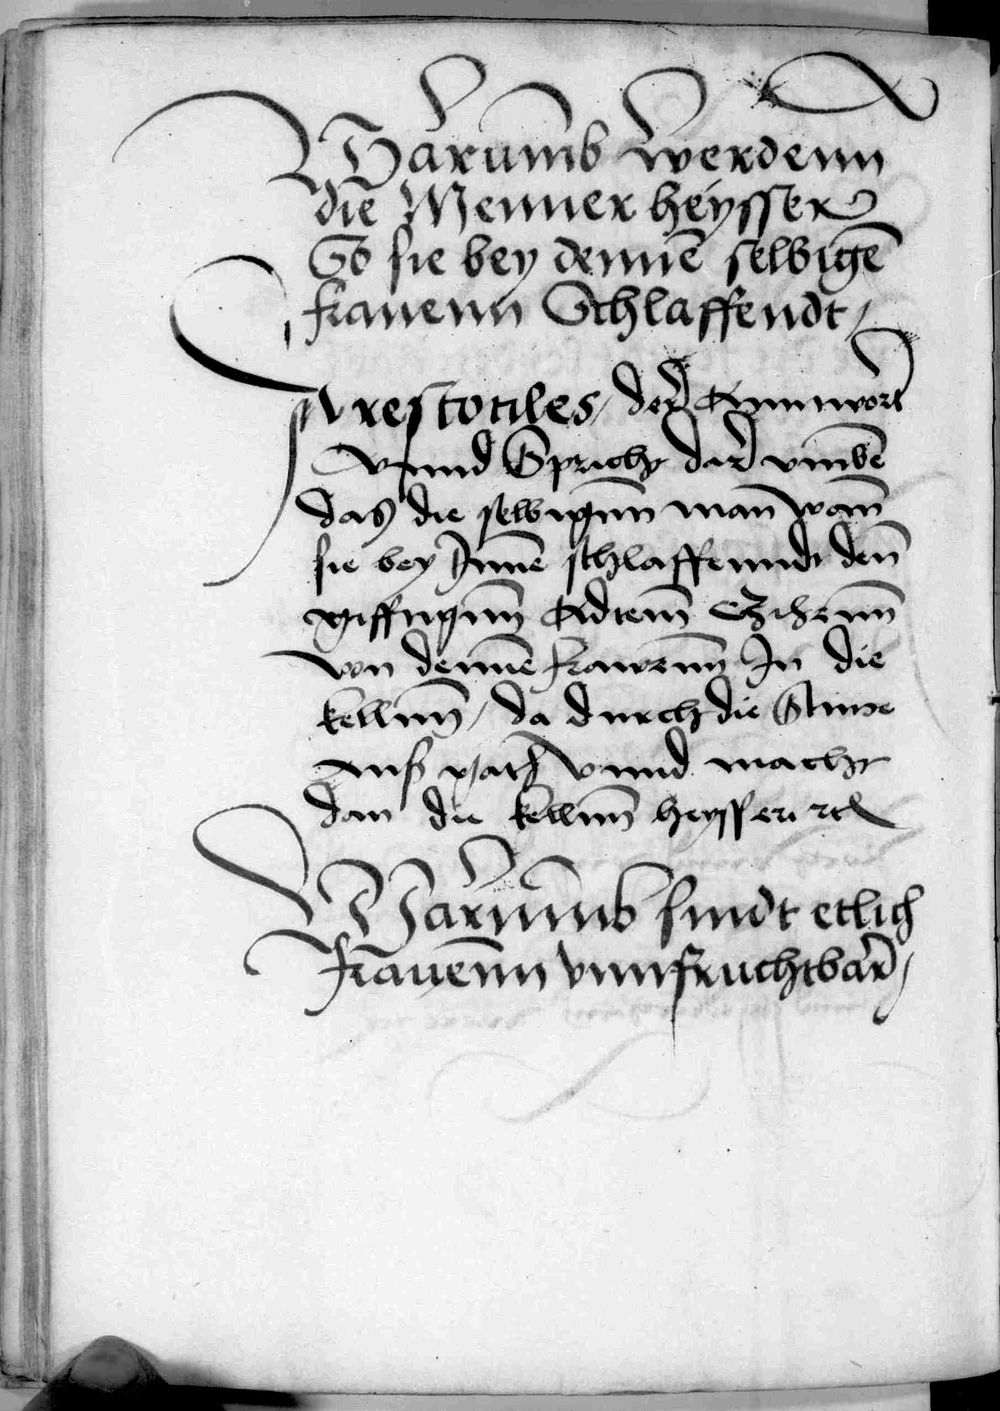 Warumb werdenn
die Menner heysser
So sie bey denne selbige
frauenn Schlaffendt /
Arestotiles / der Annwort
Vnnd Spricht dar vmbe
das die selbigenn man wan
sie bey Inne schlaffenndt den
gifftigenn Adtem Ezihenn
von denne frawenn In die
kellnn / da durch die Stime
auß gatt Vnnd macht
dan die kellnn heysser etc
Warumb sindt etlich
frauenn Vnnfruchtbar /